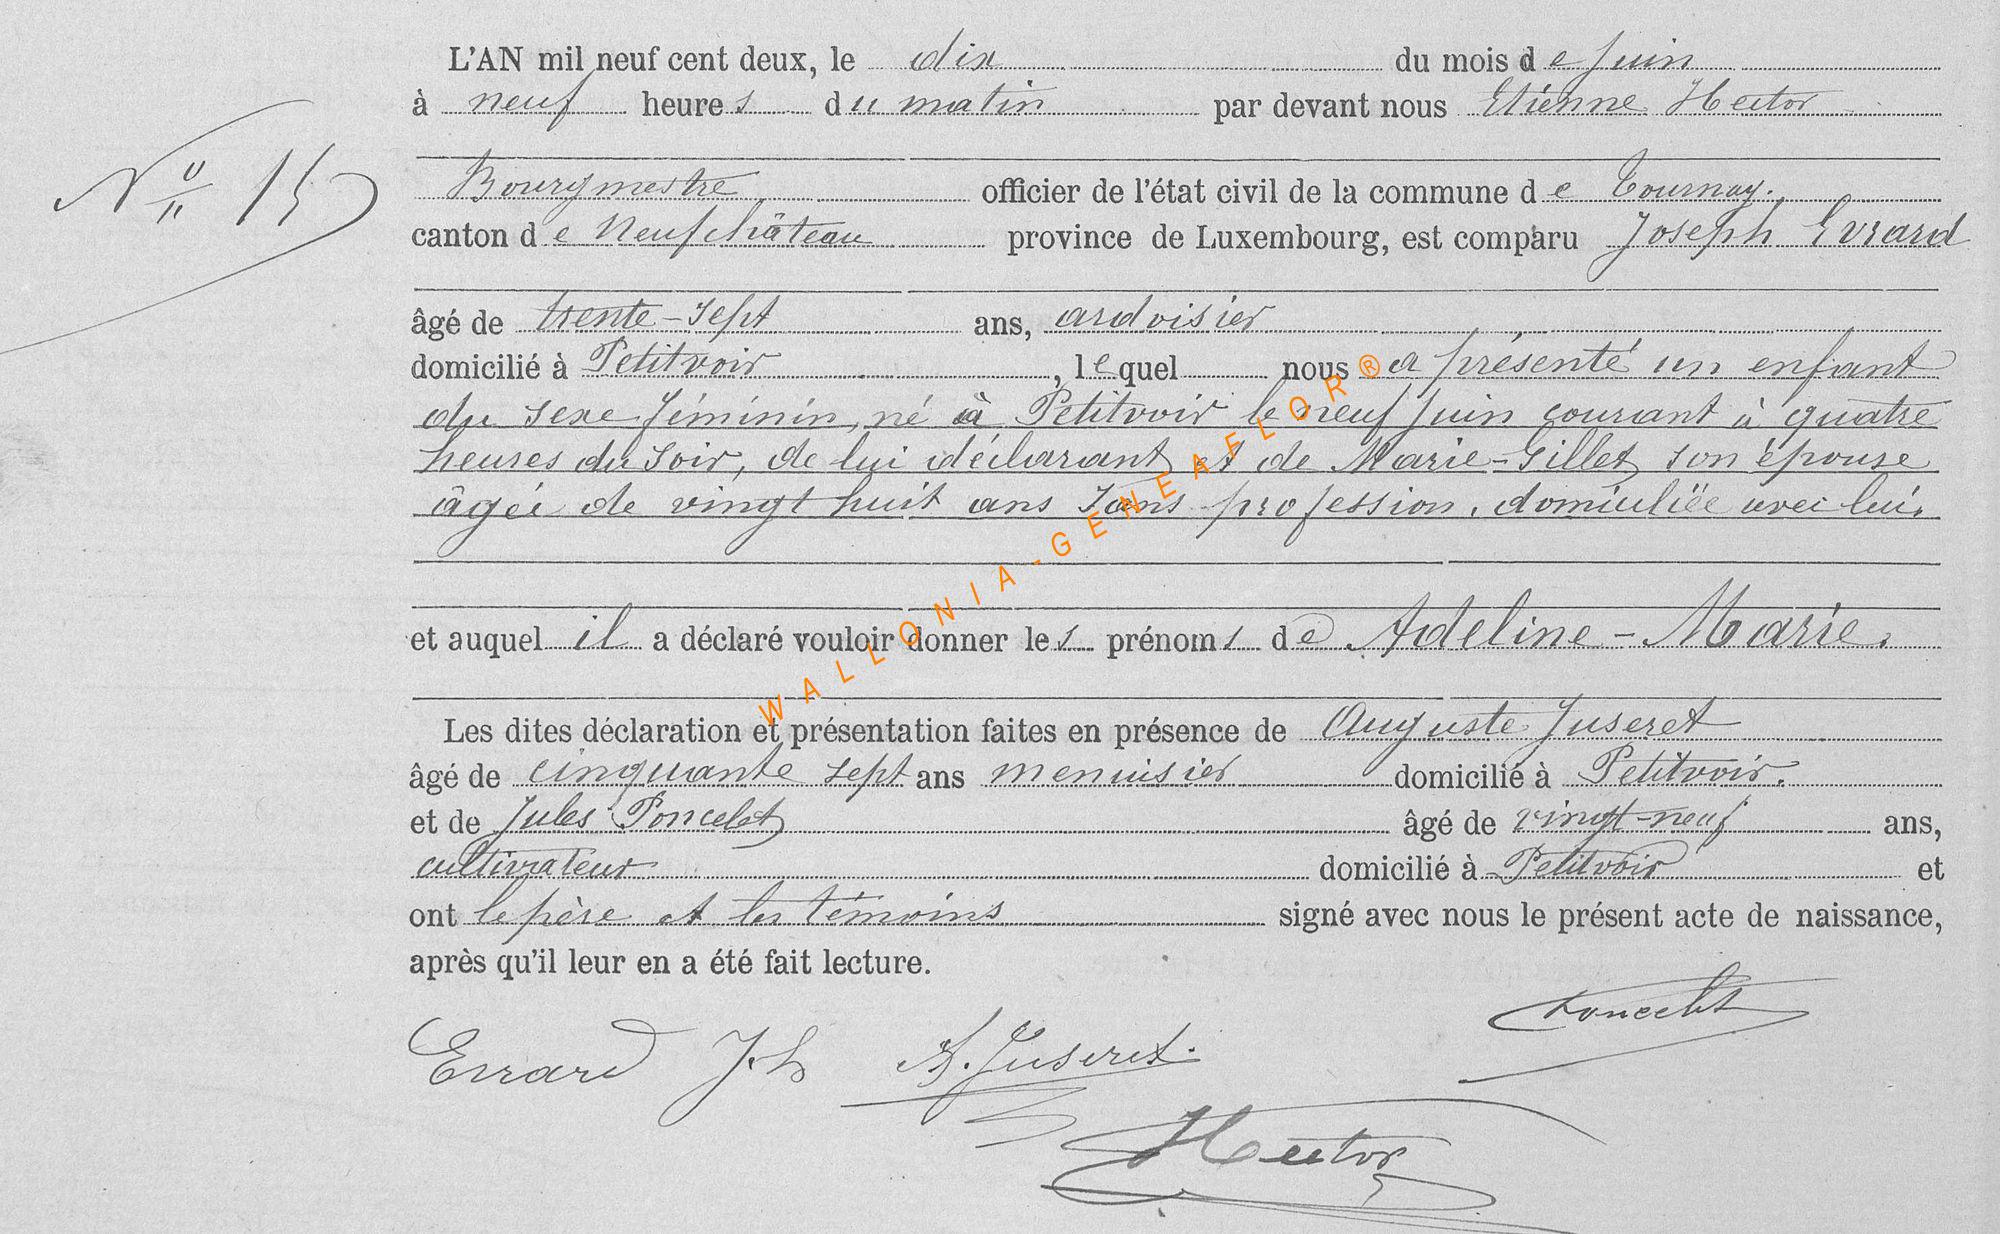 L'AN mil neuf cent deux, le dix du mois de Juin
à neuf heures du matin par devant nous Etienne Hector
N° 15
Bourgmestre officier de l'état civil de la commune de Tournay.
canton de Neufchâteau province de Luxembourg, est comparu Joseph Evrard
âgé de trente-sept ans, ardoisier
domicilié à Petitvoir, lequel nous a présenté un enfant
du sexe féminin, né à Petitvoir le neuf Juin courant à quatre
heures du soir, de lui déclarant et de Marie-Gillet son épouse
âgée de vingt huit ans sans profession, domiciliée avec lui.
et auquel il a déclaré vouloir donner les prénoms de Adeline-Marie.
Les dites déclaration et présentation faites en présence de Auguste Juseret
âgé de cinquante sept ans menuisier domicilié à Petitvoir.
et de Jules Poncelet âgé de vingt-neuf ans,
cultivateur domicilié à Petitvoir et
ont le père et les témoins signé avec nous le présent acte de naissance,
après qu'il leur en a été fait lecture.
Poncelet
Evrard J.h A. Juseret.
Hector
WALLONIA-GENEAFLOR®